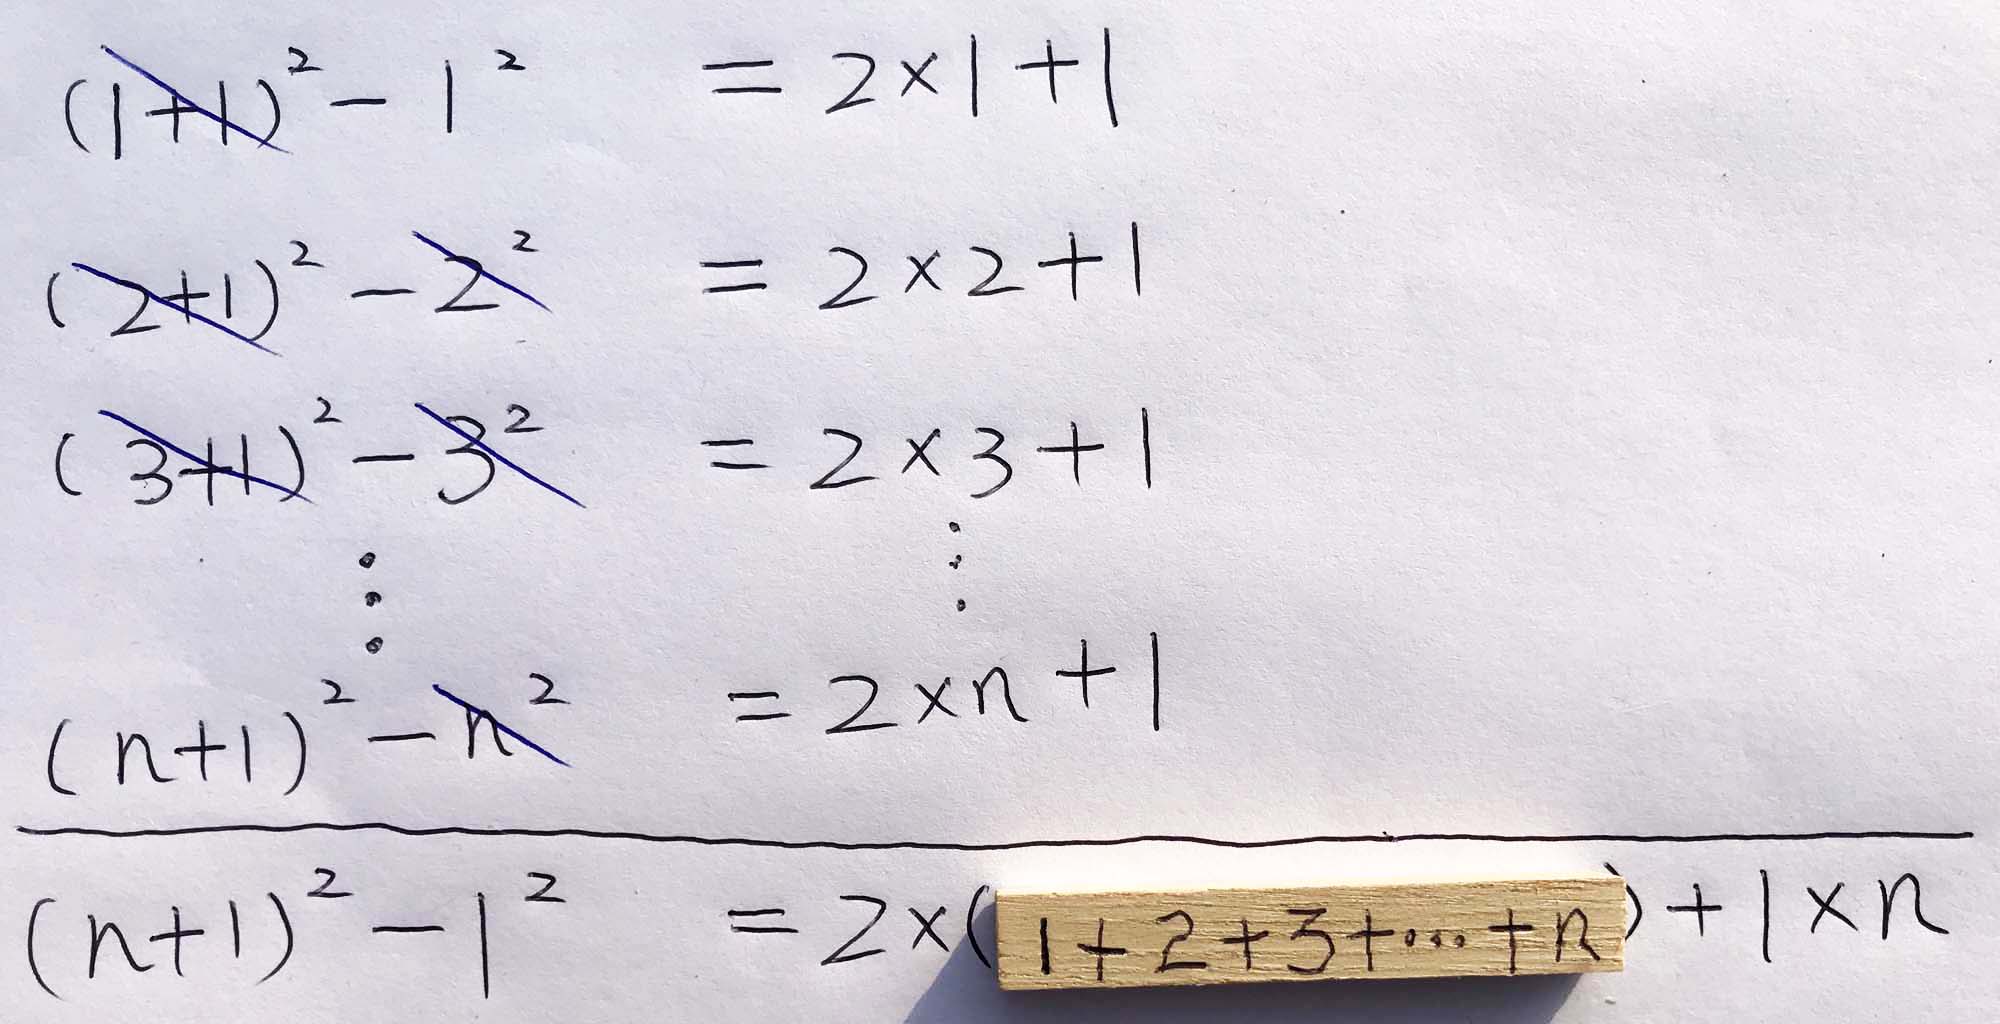 (1+1)² - 1² = 2×1+1
(2+1)² - 2² = 2×2+1
(3+1)² - 3² = 2×3+1
⋮ ⋮
(n+1)² - n² = 2×n+1
(n+1)² - 1² = 2×(1+2+3+…+n)+1×n